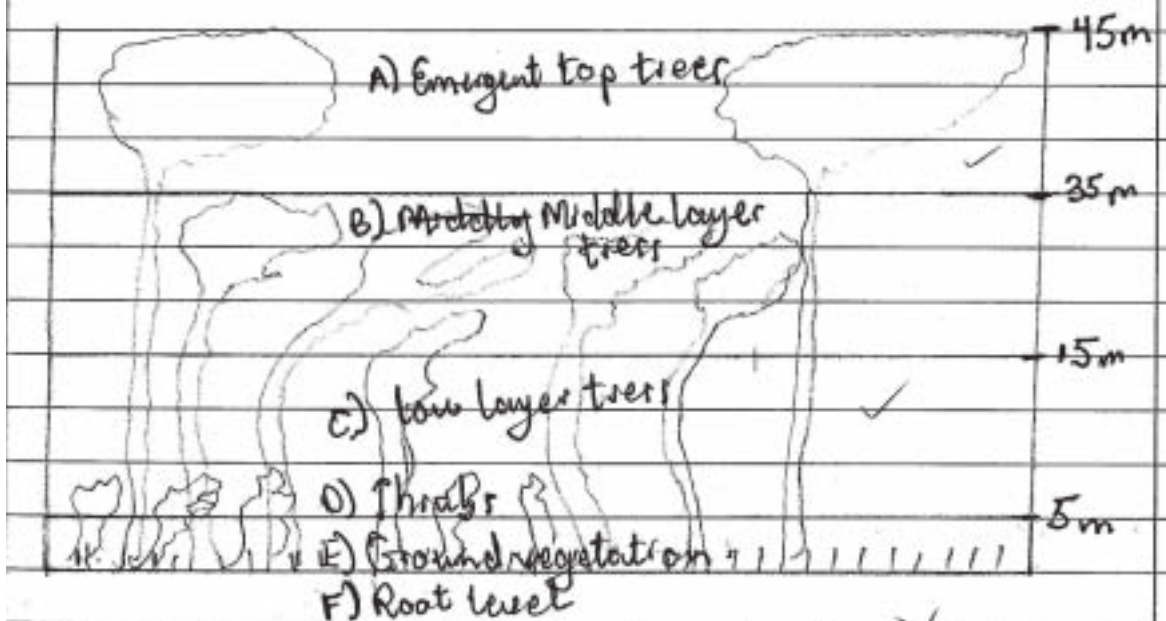 45m
A) Emergent top trees
35m
B) Middle layer
trees
15m
C) low layer trees
D) Shrabs
5m
E) Ground vegetation
F) Root level